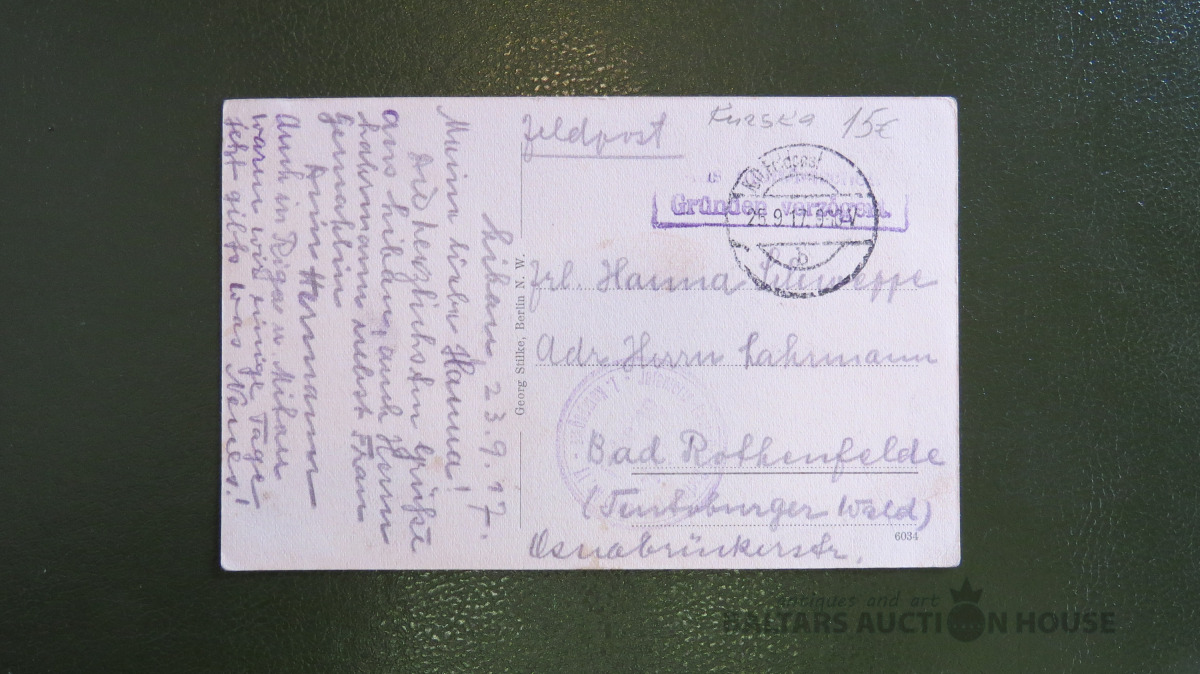 Feldpost
Kurska 15€
Gründen verzögert.
K.D. Feldpost
25.9.17. 9-10V
b
Frl. Hanna Schweppe
Adr. Herrn Lahrmann
Bad Rothenfelde
(Teutoburger Wald)
Osnabrückerstr.
6034
Georg Stilke, Berlin N. W.
Libau, 23.9.17.
Meine liebe Hanna!
Die herzlichsten Grüße
aus Libau, auch Herrn
Lahrmann nebst Frau
Gemahlin
Armin Hermann
Auch in Riga u. Mitau
waren wir einige Tage
jetzt gibts was Neues!
antiques and art
BALTARS AUCTION HOUSE